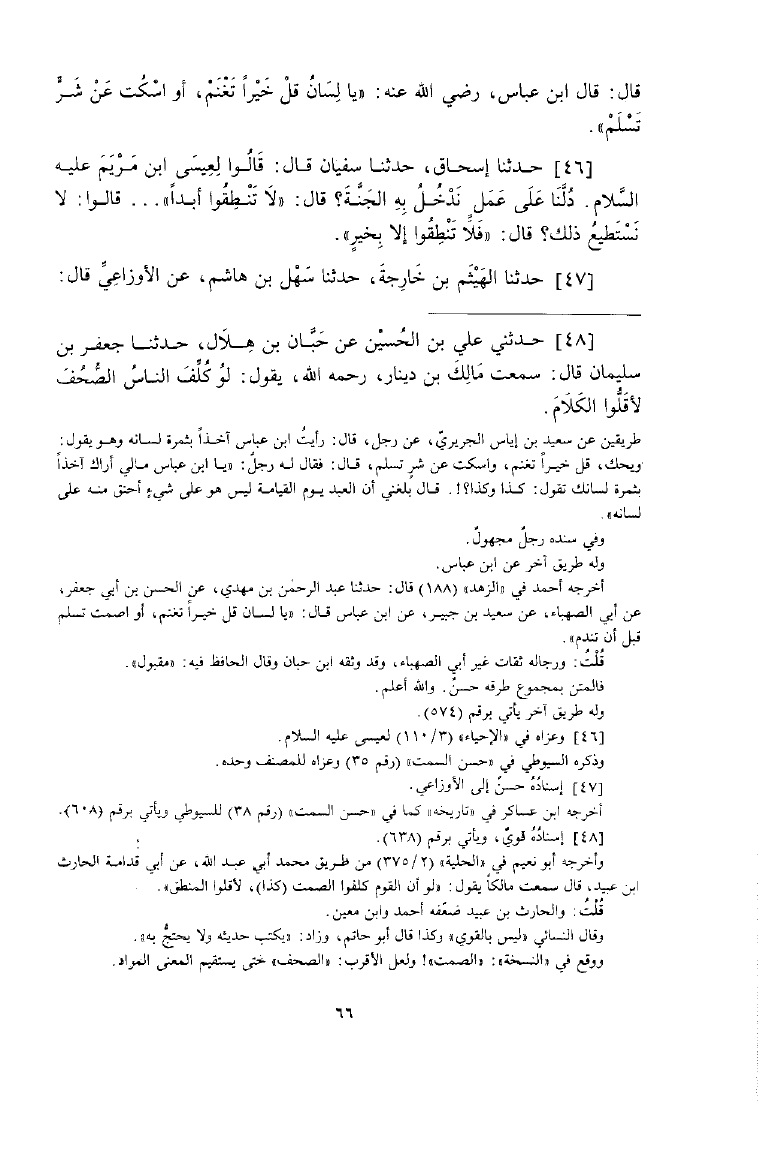 قال: قال ابن عباس، رضي الله عنه: «يا لِسَانُ قلْ خَيْراً تَغْنَمْ، أو اسْكُت عَنْ شَرٍّ
تَسْلَمْ».
[٤٦] حدثنا إسحاق، حدثنا سفيان قال: قَالُوا لِعِيسَى ابن مَرْيَمَ عليه
السَّلام. دُلَّنَا عَلَى عَمَلٍ نَدْخُلُ بِهِ الجَنَّةَ؟ قال: «لَا تَنْطِقُوا أبداً»... قالوا: لا
نَسْتَطيعُ ذلك؟ قال: «فَلَا تَنْطِقُوا إلا بِخيرٍ».
[٤٧] حدثنا الهَيْثَم بن خَارِجةَ، حدثنا سَهْل بن هاشم، عن الأوزاعِيِّ قال:
[٤٨] حدثني علي بن الحُسَيْن عن حَبَّان بن هِلَال، حدثنا جعفر بن
سليمان قال: سمعت مَالِكَ بن دينار، رحمه الله، يقول: لوُ كُلِّفَ الناسُ الصُّحُفَ
لأقَلُّوا الكَلَامَ.
طريقين عن سعيد بن إياس الجريريّ، عن رجل، قال: رأيتُ ابن عباس آخذاً بثمرة لسانه وهو يقول:
ويحك، قل خيراً تغنم، واسكت عن شرٍ تسلم، قال: فقال له رجلٌ: «يا ابن عباس مالي أراك آخذاً
بثمرة لسانك تقول: كذا وكذا؟!. قال بلغني أن العبد يوم القيامة ليس هو على شيءٍ أحنق منه على
لسانه».
وفي سنده رجلٌ مجهولٌ.
وله طريق آخر عن ابن عباس.
أخرجه أحمد في «الزهد» (١٨٨) قال: حدثنا عبد الرحمٰن بن مهدي، عن الحسن بن أبي جعفر،
عن أبي الصهباء، عن سعيد بن جبير، عن ابن عباس قال: «يا لسان قل خيراً تغنم، أو اصمت تسلم
قبل أن تندم».
قُلْتُ: ورجاله ثقات غير أبي الصهباء، وقد وثقه ابن حبان وقال الحافظ فيه: «مقبول».
فالمتن بمجموع طرقه حسنٌ. والله أعلم.
وله طريق آخر يأتي برقم (٥٧٤).
[٤٦] وعزاه في «الإحياء» (٣/ ١١٠) لعيسى عليه السلام.
وذكره السيوطي في «حسن السمت» (رقم ٣٥) وعزاه للمصنف وحده.
[٤٧] إسنادُهُ حسنٌ إلى الأوزاعي.
أخرجه ابن عساكر في «تاريخه» كما في «حسن السمت» (رقم ٣٨) للسيوطي ويأتي برقم (٦٠٨).
[٤٨] إسنادُهُ قويٌ، ويأتي برقم (٦٣٨).
وأخرجه أبو نعيم في «الحلية» (٢/ ٣٧٥) من طريق محمد أبي عبد الله، عن أبي قدامة الحارث
ابن عبيد، قال سمعت مالكاً يقول: «لو أن القوم كلفوا الصمت (كذا)، لأقلوا المنطق».
قُلْتُ: والحارث بن عبيد ضعّفه أحمد وابن معين.
وقال النسائي «ليس بالقوي» وكذا قال أبو حاتم، وزاد: «يكتب حديثه ولا يحتجُّ به».
ووقع في «النسخة»: «الصمت»! ولعل الأقرب: «الصحف» حتى يستقيم المعنى المراد.
٦٦